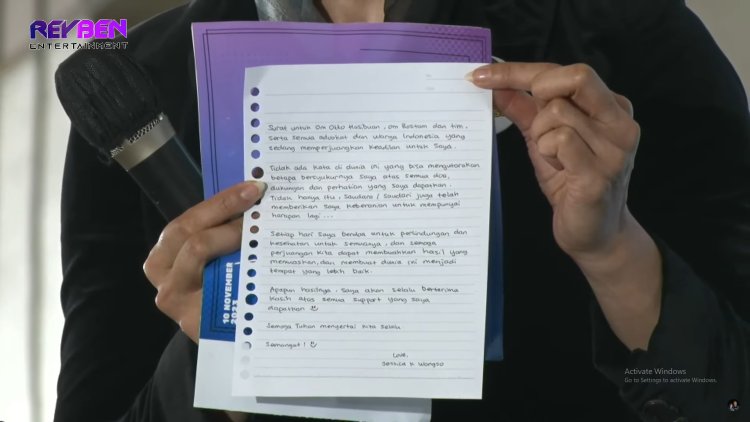 REYBEN
ENTERTAINMENT
Surat untuk Om Otto Hasibuan, om Bostam dan tim,
serta semua advokat dan warga Indonesia yang
sedang memperjuangkan keadilan untuk saya.
Tidak ada kata di dunia ini yang bisa mengutarakan
betapa bersyukurnya saya atas semua doa,
dukungan dan perhatian yang saya dapatkan.
Tidak hanya itu, saudara / saudari juga telah
memberikan saya keberanian untuk mempunyai
harapan lagi ...
Setiap hari saya berdoa untuk perlindungan dan
kesehatan untuk semuanya, dan semoga
perjuangan kita dapat membuahkan hasil yang
memuaskan, dan membuat dunia ini menjadi
tempat yang lebih baik.
Apapun hasilnya, saya akan selalu berterima
kasih atas semua support yang saya
dapatkan
Semoga Tuhan menyertai kita selalu
Semangat!
Love,
Jessica K Wongso
10 NOVEMBER
2023
Activate Windows
Go to Settings to activate Windows.